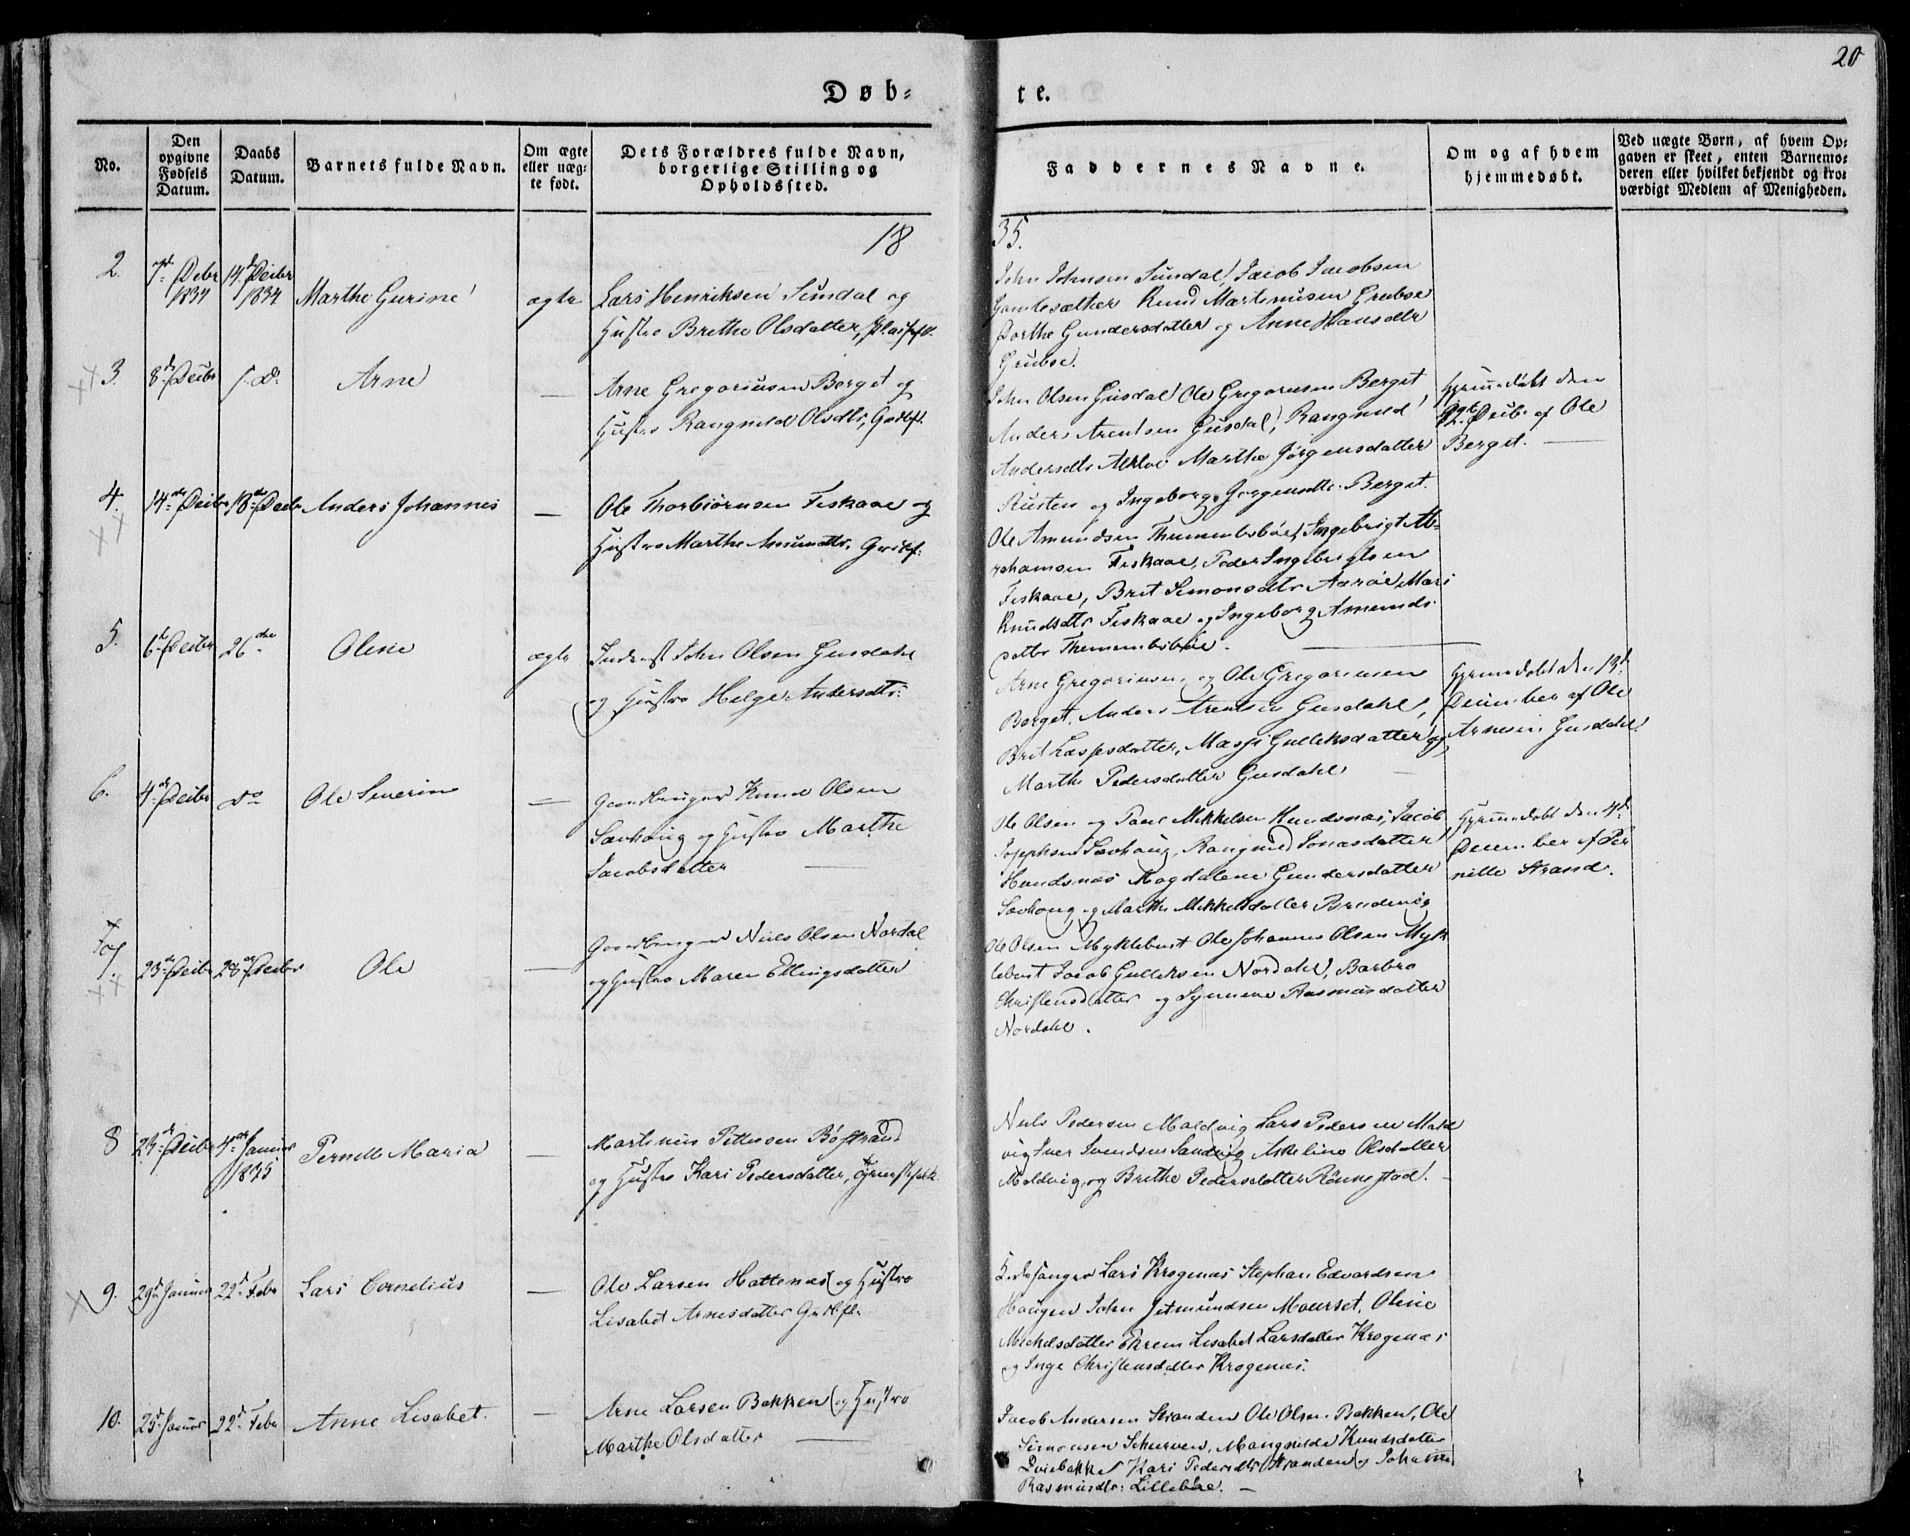 20
Døb-
te.
No.
Den
opgivne
Fødsels
Datum.
Daabs
Datum.
Barnets fulde Navn.
Om ægte
eller uæg-
te født.
Dets Forældres fulde Navn,
borgerlige Stilling og
Opholdssted.
Faddernes Navne.
Om og af hvem
hjemmedøbt.
Ved uægte Børn, af hvem Op-
gaven er skeet, enten Barnemo-
deren eller hvilket bekjendt og tro-
værdigt Medlem af Menigheden.
18
35.
2.
7de Debr
1834
14de Deibr
1834
Marthe Gurine
ægte
Lars Henriksen Sundal og
Hustro Brethe Olsdatter,
John Johnsen Sundal, Jacob Jacobsen
Gamlesæther Knud Martinusen Grubse
Dorthe Gundersdatter og Anne Hansdtr
Grubse.
3.
8de Deibr
Do
Arne
—
Arne Gregoriusen Berget og
Hustro Rangnild Olsdtr, Grdbf.
John Olsen Gusdal Ole Gregoriusen Berget
Anders Arentsen Gusdal, Rangnild
Andersdtr Marthe Jørgensdatter
Rusten og Ingeborg Jørgensdtr. Berget.
Hjemmedøbt den
Deibr. af Ole
Berget. —
4.
14de Deibr
18de Deibr
Anders Johannes
—
Ole Thorbiørnsen Fiskaae og
Hustro Marthe Amundtr. Grdbf.
Ole Amundsen Ingebrigt Ab-
rahamsen Fiskaae, Peder Ingebrigtsen
Fiskaae, Brit Simonsdtr Aarøe, Mari
Knudsdtr Fiskaae og Ingeborg Amunds-
datter
5.
6te Deibr
26de
Oline
ægte
Inderst John Olsen Gusdahl
og Hustro Helge Andersdtr:
Arne Gregoriusen og Ole Gregoriusen
Berget, Anders Arentsen Gusdahl,
Brit Laspesdatter, Massi Gulleksdatter og
Marthe Pedersdatter Gusdahl
Hjemmedøbt den 13de
December af Ole
Arnesen Gusdahl
6.
4de Deibr
Do
Ole Severin
—
Gaardbruger Knud Olsen
Savhoug og Hustro Marthe
Jacobsdatter —
Ole Olsen og Paul Mikkelsen Hundsnæs, Jacob
Josephsen Savhoug, Rangnild Jonasdatter
Hundsnæs Magdalene Gundersdatter
Savhoug og Marthe Mikkelsdatter Bredevig
Hjemmedøbt den 4de
December af Per-
nille Strand.
7.
23de Deibr
28de Deibr
Ole
—
Gaardbruger Niels Olsen Nordal
og Hustro Maren Ellingsdatter
Ole Olsen Myklebust Ole Johannes Olsen Myk
lebust Jacob Gulleksen Nordahl, Barbro
Christensdatter og Synneve Rasmusdatter
Nordahl.
8
24de Deibr
4de Januar
1835
Pernelle Maria
—
Martinus Pettersen Bøstrand
og Hustro Kari Pedersdatter,
Niels Pedersen Maldvig, Lars Pedersen Mald
vig Iver Svendsen Sandvig Akseline Olsdatter
Moldvig, og Brethe Pedersdatter Rønnestad. —
9.
29de Januar
22de Febr
Lars Cornelius
—
Ole Larsen Hattenæs og Hustro
Lisabet Arnesdatter Grdbf.
Lars Krogenæs Stephan Edvardsen
Haugen John Jetmundsen Mourset, Oline
Michelsdatter Ekrem Lisabet Larsdatter Krogenæs
og Inge Christensdatter Krogenæs.
10.
25de Januar
22de Febr
Anne Lisabet.
—
Arne Larsen Bakken og Hustro
Marthe Olsdatter —
Jacob Andersen Stranden Ole Olsen Bakken, Ole
Simonsen Skurven, Mangnilde Knudsdatter
Kari Pedersdtr Stranden og Johanne
Rasmusdtr: Lillebøe. —